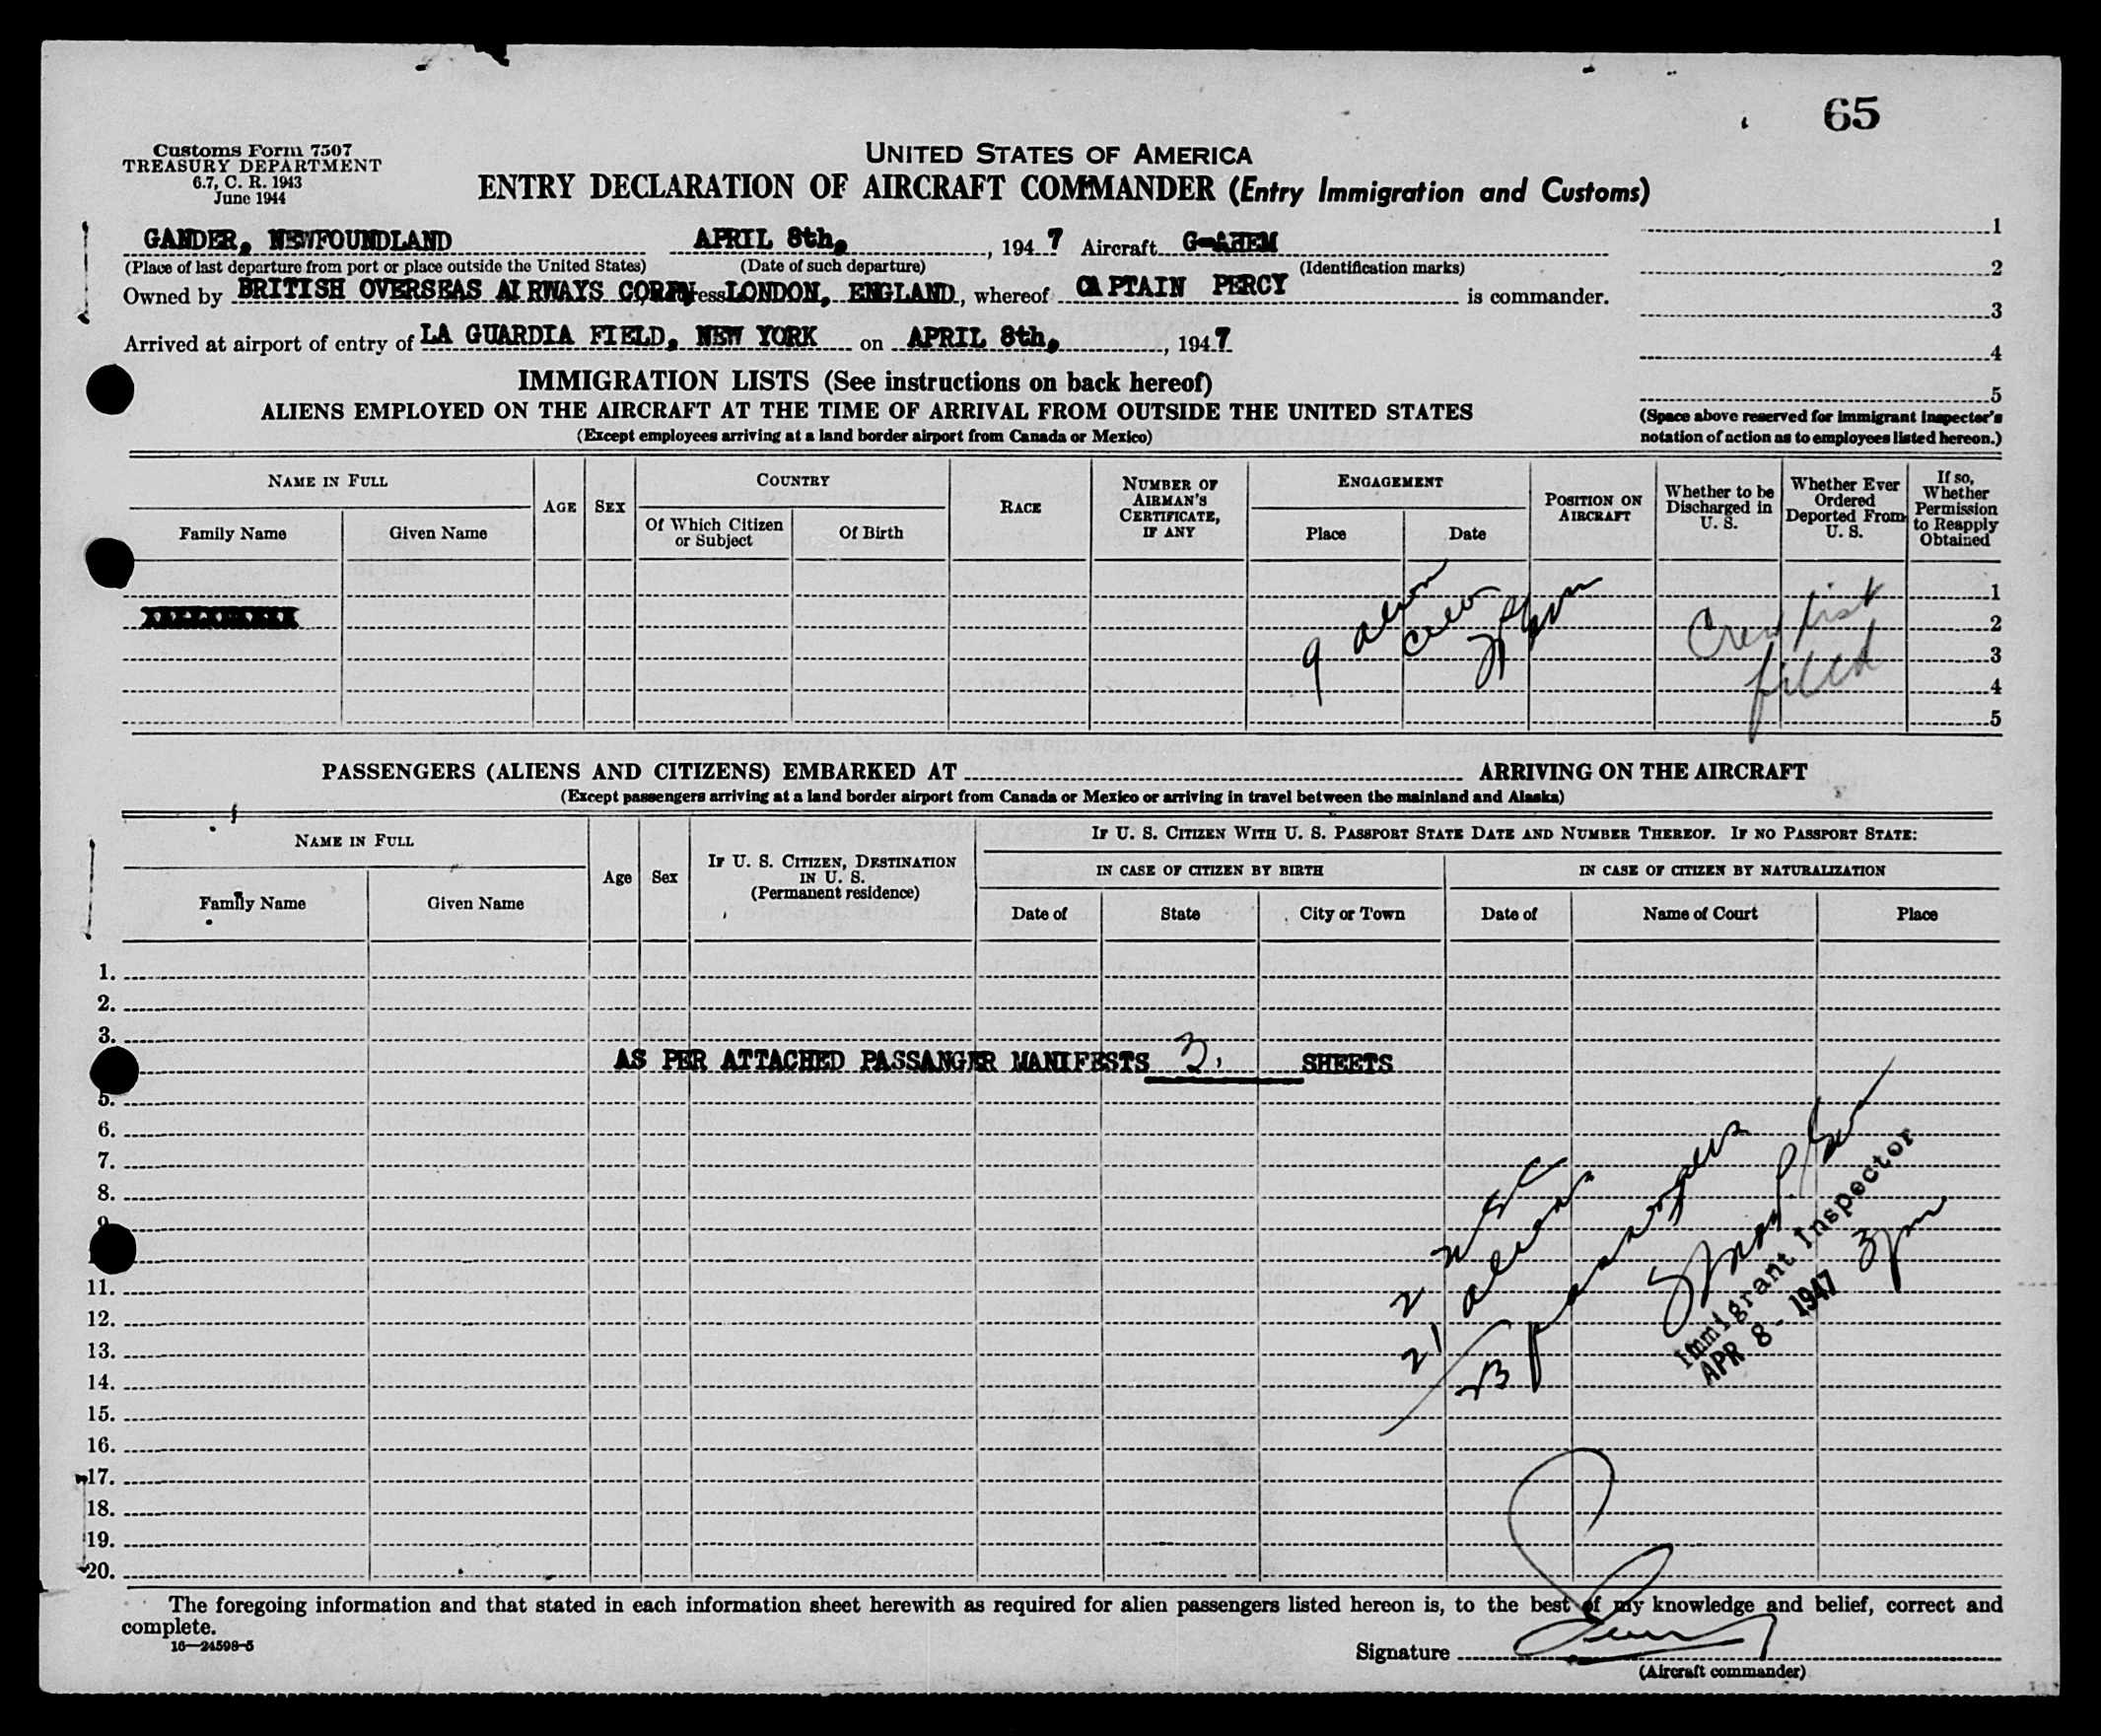 65
Customs Form 7507
TREASURY DEPARTMENT
6.7, C. R. 1943
June 1944
UNITED STATES OF AMERICA
ENTRY DECLARATION OF AIRCRAFT COMMANDER (Entry Immigration and Customs)
GANDER, NEWFOUNDLAND APRIL 8th, , 194 7 Aircraft G-AHEM
(Place of last departure from port or place outside the United States) (Date of such departure) (Identification marks)
Owned by BRITISH OVERSEAS AIRWAYS CORPN ess LONDON, ENGLAND , whereof CAPTAIN PERCY is commander.
Arrived at airport of entry of LA GUARDIA FIELD, NEW YORK on APRIL 8th, , 194 7
1
2
3
4
5
(Space above reserved for immigrant inspector's
notation of action as to employees listed hereon.)
IMMIGRATION LISTS (See instructions on back hereof)
ALIENS EMPLOYED ON THE AIRCRAFT AT THE TIME OF ARRIVAL FROM OUTSIDE THE UNITED STATES
(Except employees arriving at a land border airport from Canada or Mexico)
NAME IN FULL
Family Name Given Name
AGE SEX
COUNTRY
Of Which Citizen or Subject Of Birth
RACE
NUMBER OF AIRMAN'S CERTIFICATE, IF ANY
ENGAGEMENT
Place Date
POSITION ON AIRCRAFT
Whether to be Discharged in U. S.
Whether Ever Ordered Deported From U. S.
If so, Whether Permission to Reapply Obtained
1
2
3
4
5
9 alien
crew
Crew list
filed
PASSENGERS (ALIENS AND CITIZENS) EMBARKED AT ARRIVING ON THE AIRCRAFT
(Except passengers arriving at a land border airport from Canada or Mexico or arriving in travel between the mainland and Alaska)
NAME IN FULL
Family Name Given Name
Age Sex
IF U. S. CITIZEN, DESTINATION IN U. S. (Permanent residence)
IF U. S. CITIZEN WITH U. S. PASSPORT STATE DATE AND NUMBER THEREOF. IF NO PASSPORT STATE:
IN CASE OF CITIZEN BY BIRTH IN CASE OF CITIZEN BY NATURALIZATION
Date of State City or Town Date of Name of Court Place
1.
2.
3.
AS PER ATTACHED PASSANGER MANIFESTS 3. SHEETS
5.
6.
7.
8.
9
11.
12.
13.
14.
15.
16.
17.
18.
19.
20.
2 USC
21 aliens
23 passengers
Immigrant Inspector
APR 8 - 1947
3pm
The foregoing information and that stated in each information sheet herewith as required for alien passengers listed hereon is, to the best of my knowledge and belief, correct and
complete.
16—24598-5
Signature
(Aircraft commander)